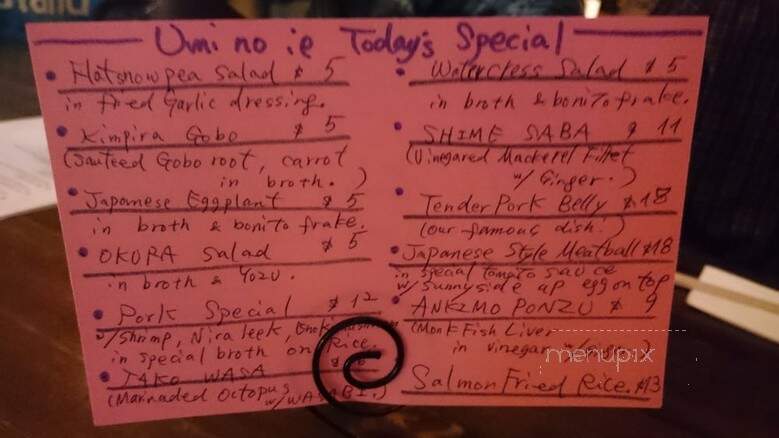 Umi no ie Today's Special
• Hotsnowpea Salad $ 5
in fried Garlic dressing.
• Kimpira Gobo $ 5
(Sauteed Gobo root, carrot
in broth.)
• Japanese Eggplant $ 5
in broth & bonito frake.
• OKURA Salad $ 5
in broth & YUZU.
• Pork Special $ 12
w/Shrimp, Nira leek,
in special broth on Rice.
• TAKO WASA
(Marinaded Octopus
w/WASABI.)
• Watercress Salad $ 5
in broth & bonito frake.
• SHIME SABA $ 11
(Vinegared Mackerel Fillet
w/ Ginger.)
• Tender Pork Belly $18
(Our famous dish!)
• Japanese Style Meatball $18
in special tomato sauce
w/ Sunnyside up egg on top
• ANKIMO PONZU $ 9
(Monk Fish Liver
in vinegar
Salmon Fried Rice. $13
menupix